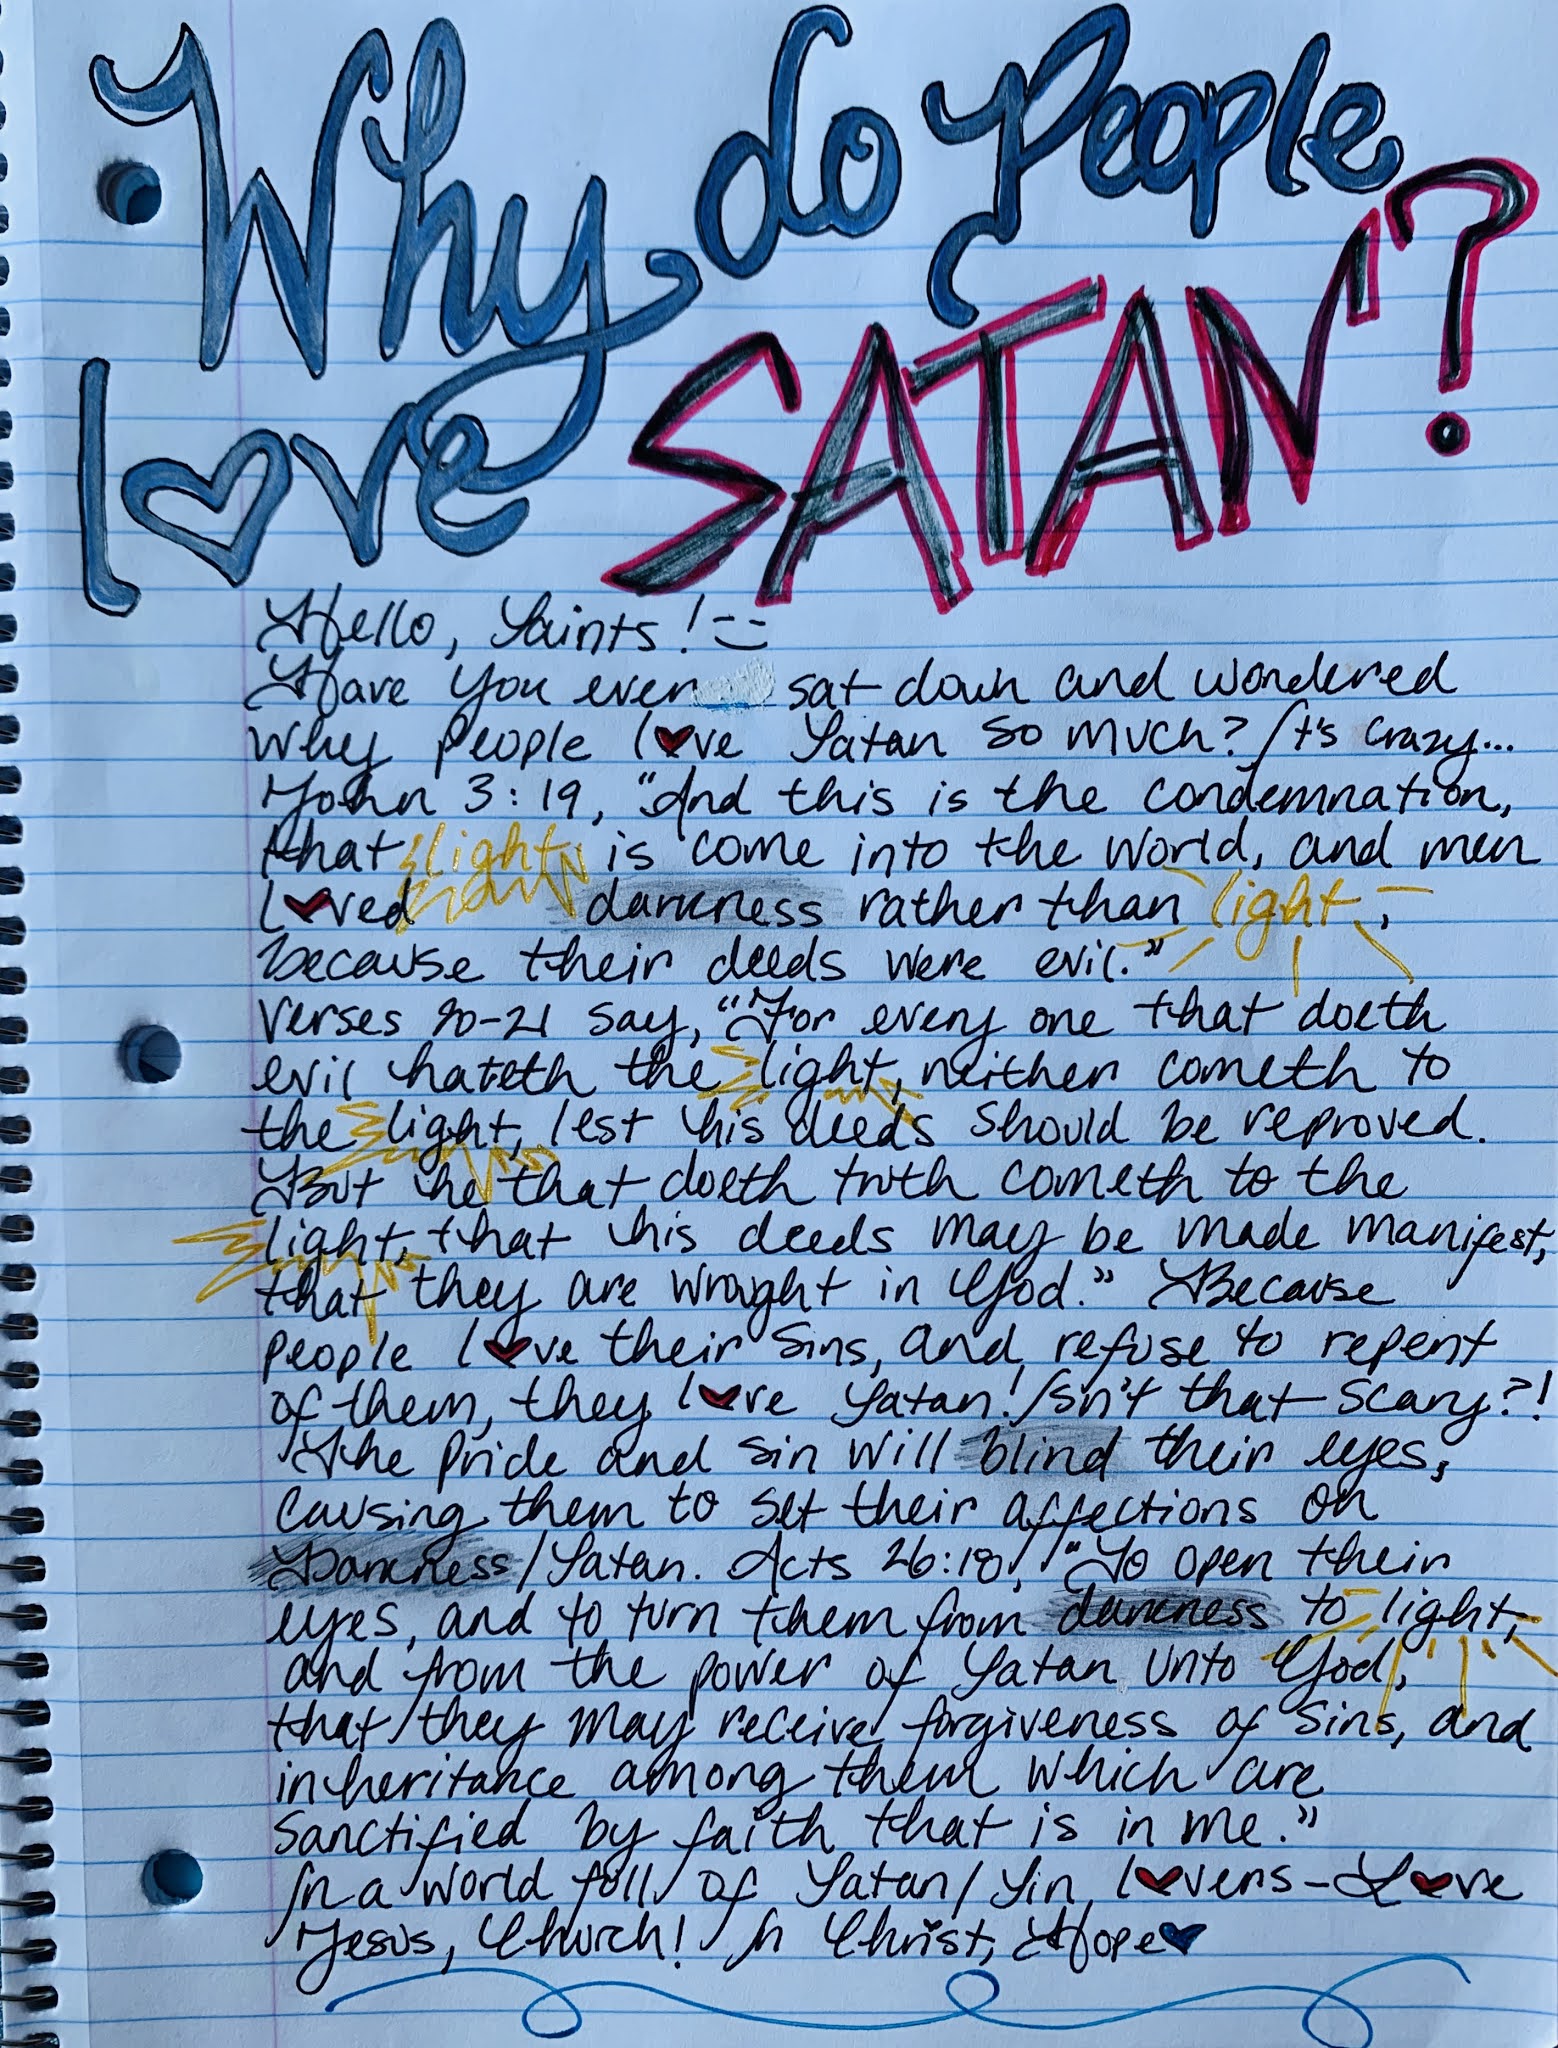 Why do People
love SATAN?
Hello, Saints! :)
Have you ever sat down and wondered
why people love Satan so much? It's crazy...
John 3:19, "And this is the condemnation,
that light is come into the world, and men
loved darkness rather than light,
because their deeds were evil."
Verses 20-21 say, "For every one that doeth
evil hateth the light, neither cometh to
the light, lest his deeds should be reproved.
But he that doeth truth cometh to the
light, that his deeds may be made manifest,
that they are wrought in God." Because
people love their sins, and refuse to repent
of them, they love Satan! Isn't that scary?!
The pride and sin will blind their eyes,
causing them to set their affections on
Darkness/Satan. Acts 26:18, "To open their
eyes, and to turn them from darkness to light,
and from the power of Satan unto God,
that they may receive forgiveness of sins, and
inheritance among them which are
sanctified by faith that is in me."
In a world full of Satan/Sin lovers-Love
Jesus, Church! In Christ, Hope